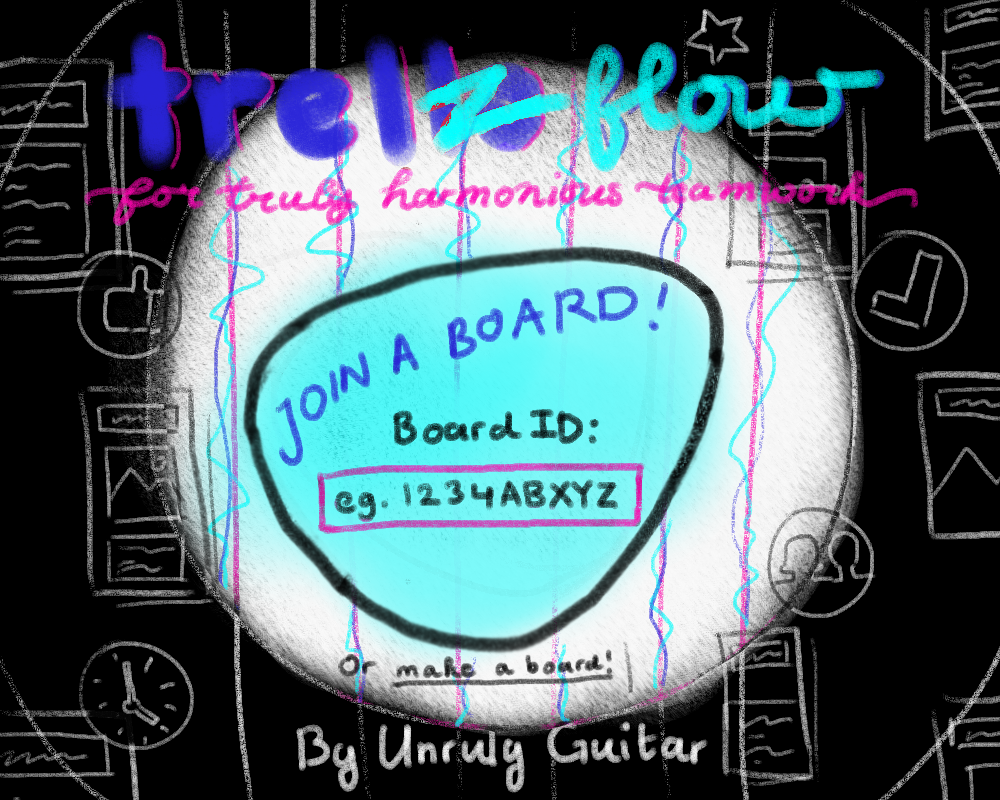 trellz flow
for truly harmonious teamwork
JOIN A BOARD!
Board ID:
eg. 1234ABXYZ
Or make a board!
By Unruly Guitar